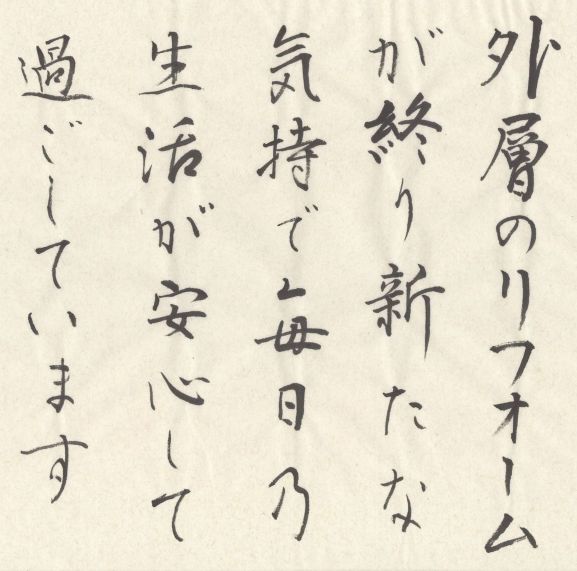 外層のリフォーム
が終り新たな
気持で毎日乃
生活が安心して
過ごしています